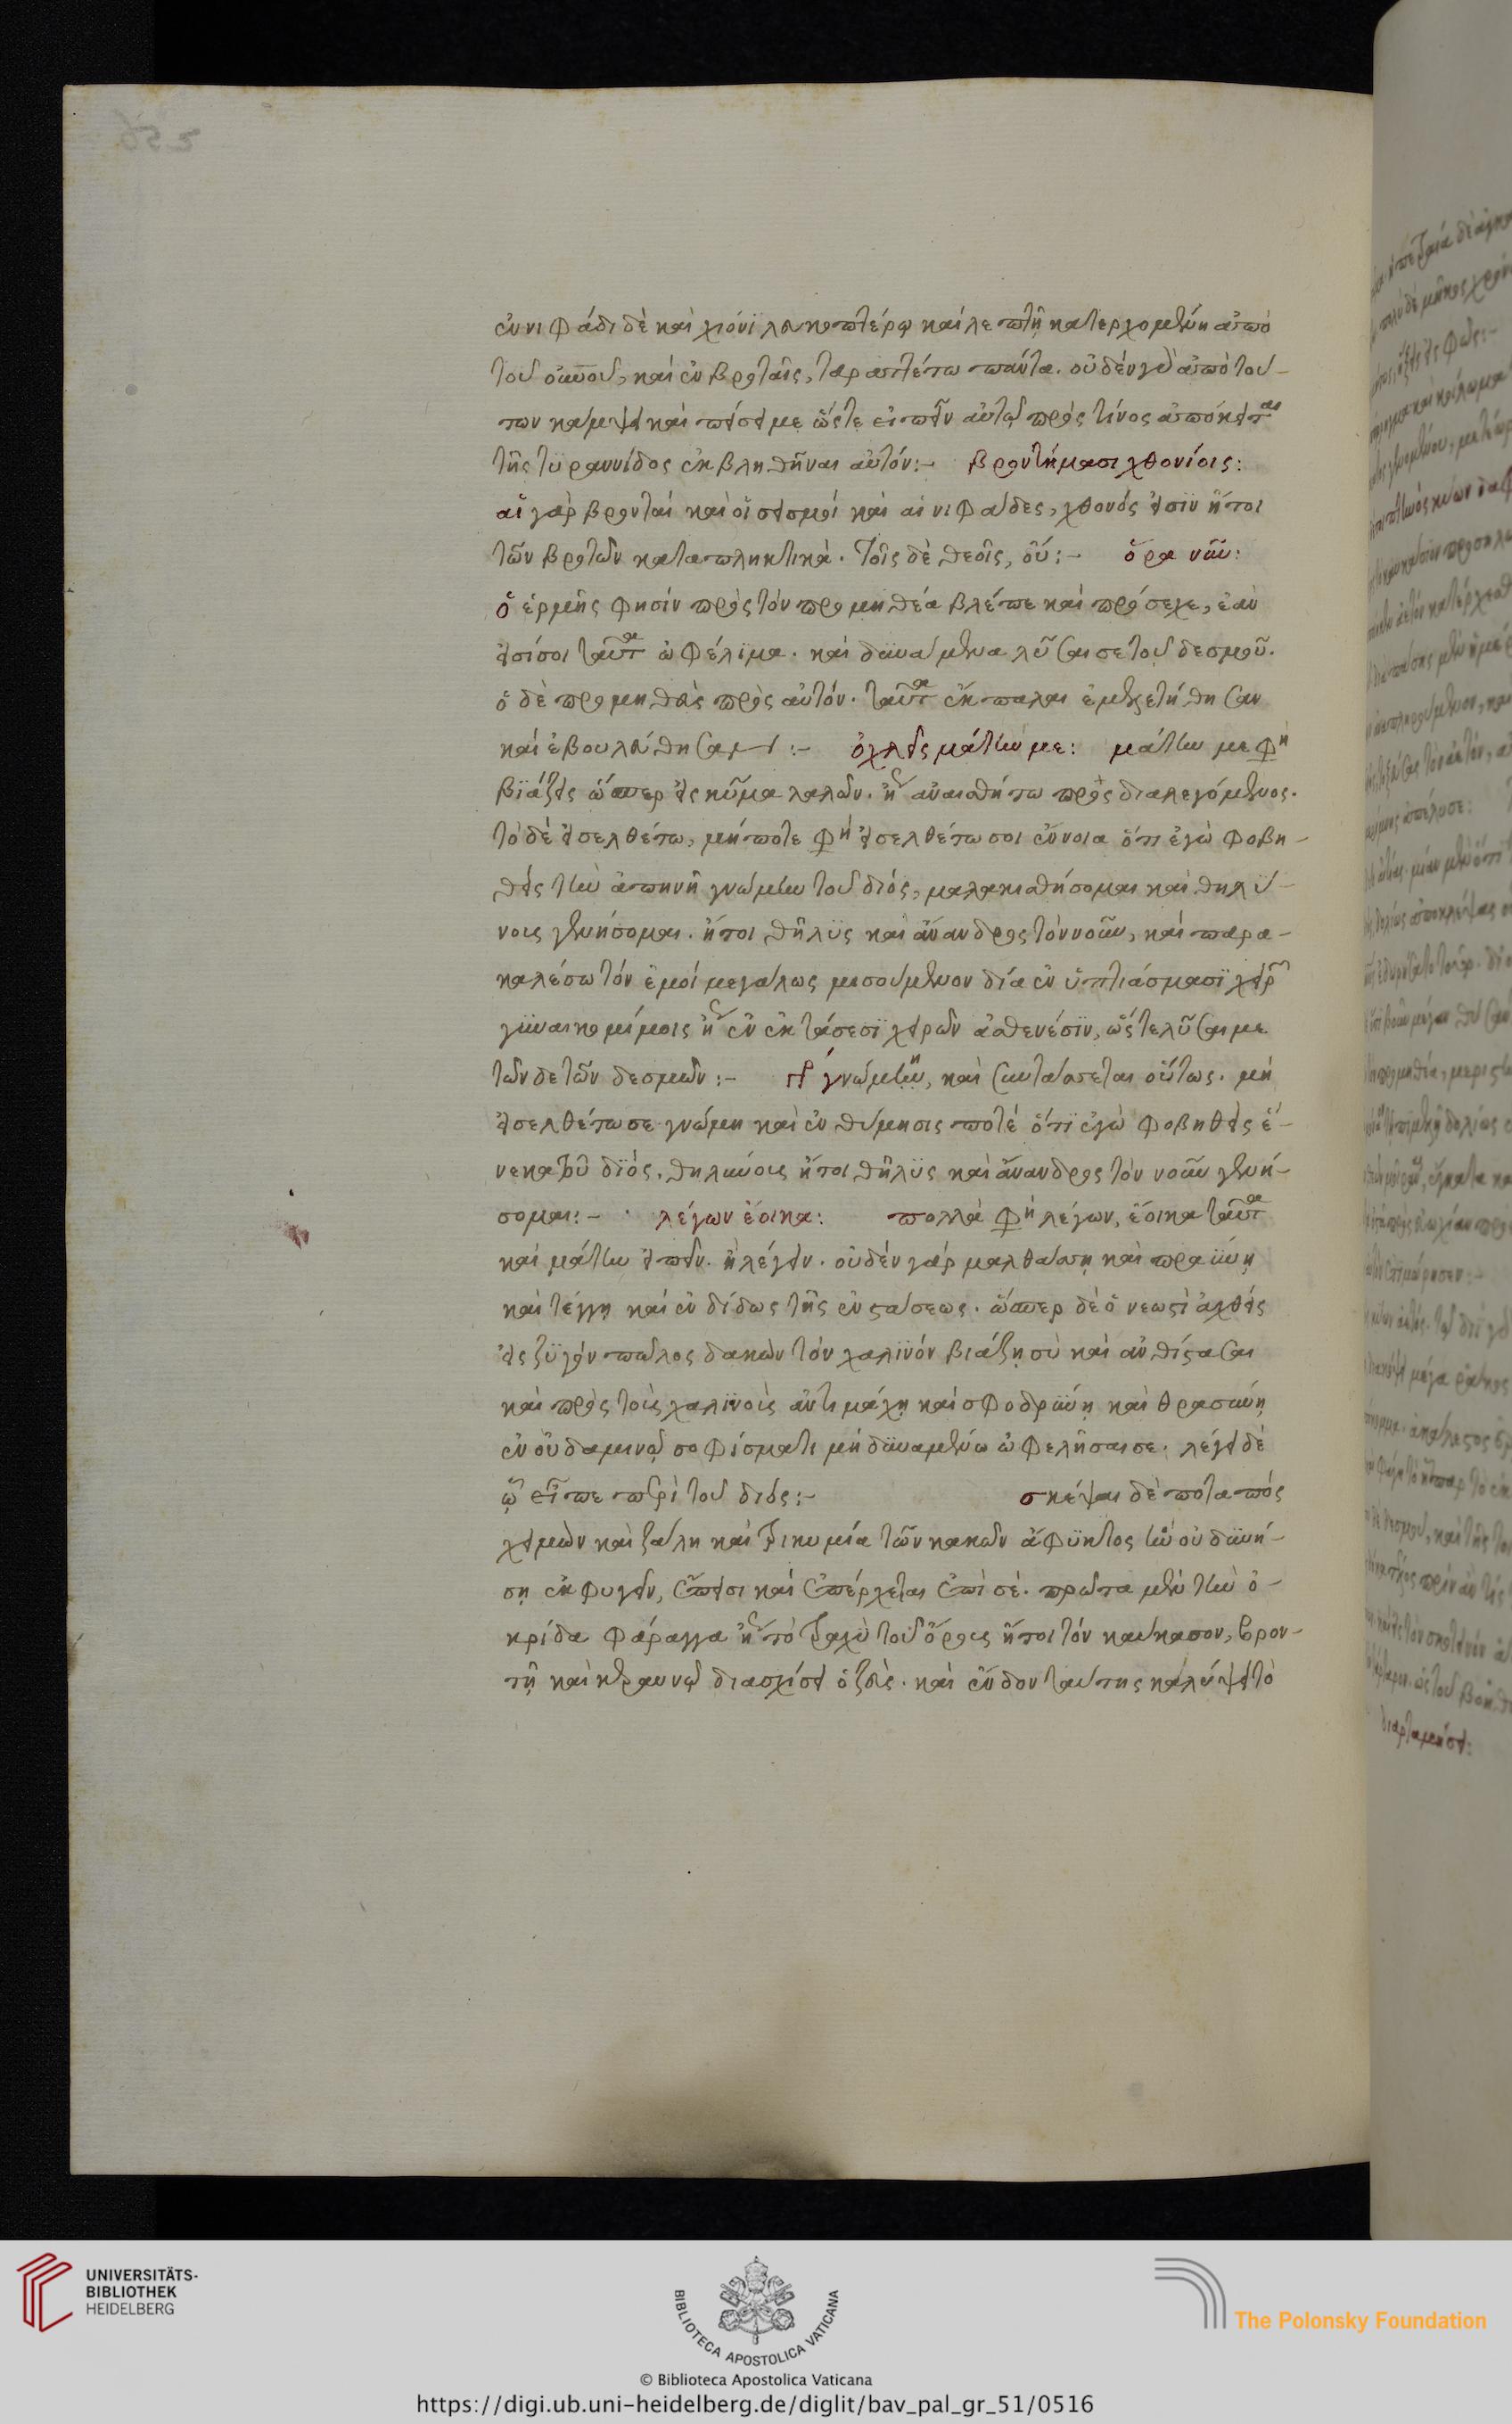 ἐν νιφάδι δὲ καὶ χιόνϊ λευκοπτέρῳ καὶ λεπτῇ κατερχομένη ἀπὸ
τοῦ οὐνοῦ, καὶ ἐν βρονταῖς, ταραττέτω πάντα. οὐδὲν γὰρ ἀπὸ τού-
των κάμψει καὶ πείσει με ὥστε εἰπεῖν αὐτῷ πρὸς τίνος ἀπόκειται
τῆς τϋραννίδος ἐκβληθῆναι αὐτόν:- βροντήμασι χθονίοις:
αἱ γὰρ βρονταὶ καὶ οἱ σεισμοὶ καὶ αἱ νιφάδες, χθονός εἰσϊν ἤτοι
τῶν βροτῶν καταπληκτικά. τοῖς δὲ θεοῖς, οὔ:- ὅρα νῦν:
ὁ ἑρμῆς φησὶν πρὸς τὸν προμηθέα βλέπε καὶ πρόσεχε, ἐὰν
εἰσί σοι ταῦτα ὠφέλϊμα. καὶ δϋνάμενα λῦσαι σε τοῦ δεσμοῦ.
ὁ δὲ προμηθεὺς πρὸς αὐτόν. ταῦτα ἔκπαλαι ἐμελετήθησαν
καὶ ἐβουλεύθησαν:- ὀχλεῖς μάτην με: μάτην με φη
βϊάζεις ὥσπερ εἰς κῦμα λαλῶν. ἢ ἀναισθήτω πρὸς διαλεγόμενος.
τὸ δὲ εἰσελθέτω, μήποτε φη εἰσελθέτω σοι ἔννοια ὅτι ἐγὼ φοβη-
θεὶς τὴν ἀπηνῆ γνώμην τοῦ διός, μαλακισθήσομαι καὶ θηλϋ-
νους γενήσομαι. ἤτοι θῆλϋς καὶ ἄνανδρος τὸν νοῦν, καὶ παρα-
καλέσω τὸν ἐμοὶ μεγάλως μισούμενον δία ἐν ὑπτιάσμασϊ χειρῶν
γϋναικομίμοις ἢ ἐν ἐκτάσεσϊ χειρῶν ἀσθενέσϊν, ὥστε λῦσαι με
τῶνδε τῶν δεσμῶν:- γνώμη, καὶ συντάσσεται οὕτως. μὴ
εἰσελθέτω σε γνώμη καὶ ἐνθύμησις ποτέ ὅτϊ ἐγὼ φοβηθεὶς ἕ-
νεκα τοῦ δϊός. θηλύνους ἤτοι θῆλϋς καὶ ἄνανδρος τὸν νοῦν γενή-
σομαι:- λέγων ἔοικα: πολλὰ φη λέγων, ἔοικα ταῦτα
καὶ μάτην εἰπεῖν. ἢ λέγειν. οὐδὲν γὰρ μαλθάσσῃ καὶ πραΰνῃ
καὶ τέγγῃ καὶ ἐνδίδως τῆς ἐνστάσεως. ὥσπερ δὲ ὁ νεωστὶ ἀχθεὶς
εἰς ζϋγὸν πῶλος δακὼν τὸν χαλϊνόν βιάζῃ σὺ καὶ ἀνθίστασαι
καὶ πρὸς τοὺς χαλϊνοὺς ἀντιμάχῃ καὶ σφοδρΰνῃ καὶ θρασύνῃ
ἐν οὐδαμινῷ σοφίσματι μὴ δϋναμένω ὠφελῆσαι σε. λέγει δὲ
ᾧ εἶπε περὶ τοῦ διός:- σκέψαι δὲ ποταπός
χειμὼν καὶ ζάλη καὶ τρικυμία τῶν κακῶν ἄφϋκτος ἣν οὐ δϋνή-
σῃ ἐκφυγεῖν, ἔπεισι καὶ ἐπέρχεται ἐπὶ σέ. πρῶτα μὲν τὴν ὀ-
κρίδα φάραγγα ἢ τὸ τραχὺ τοῦ ὄρους ἤτοι τὸν καύκασον, βρον-
τῇ καὶ κεραυνῷ διασχίσει ὁ ζεύς. καὶ ἔνδον ταύτης καλύψει τὸ
UNIVERSITÄTS-
BIBLIOTHEK
HEIDELBERG
BIBLIOTECA APOSTOLICA VATICANA
The Polonsky Foundation
© Biblioteca Apostolica Vaticana
https://digi.ub.uni-heidelberg.de/diglit/bav_pal_gr_51/0516